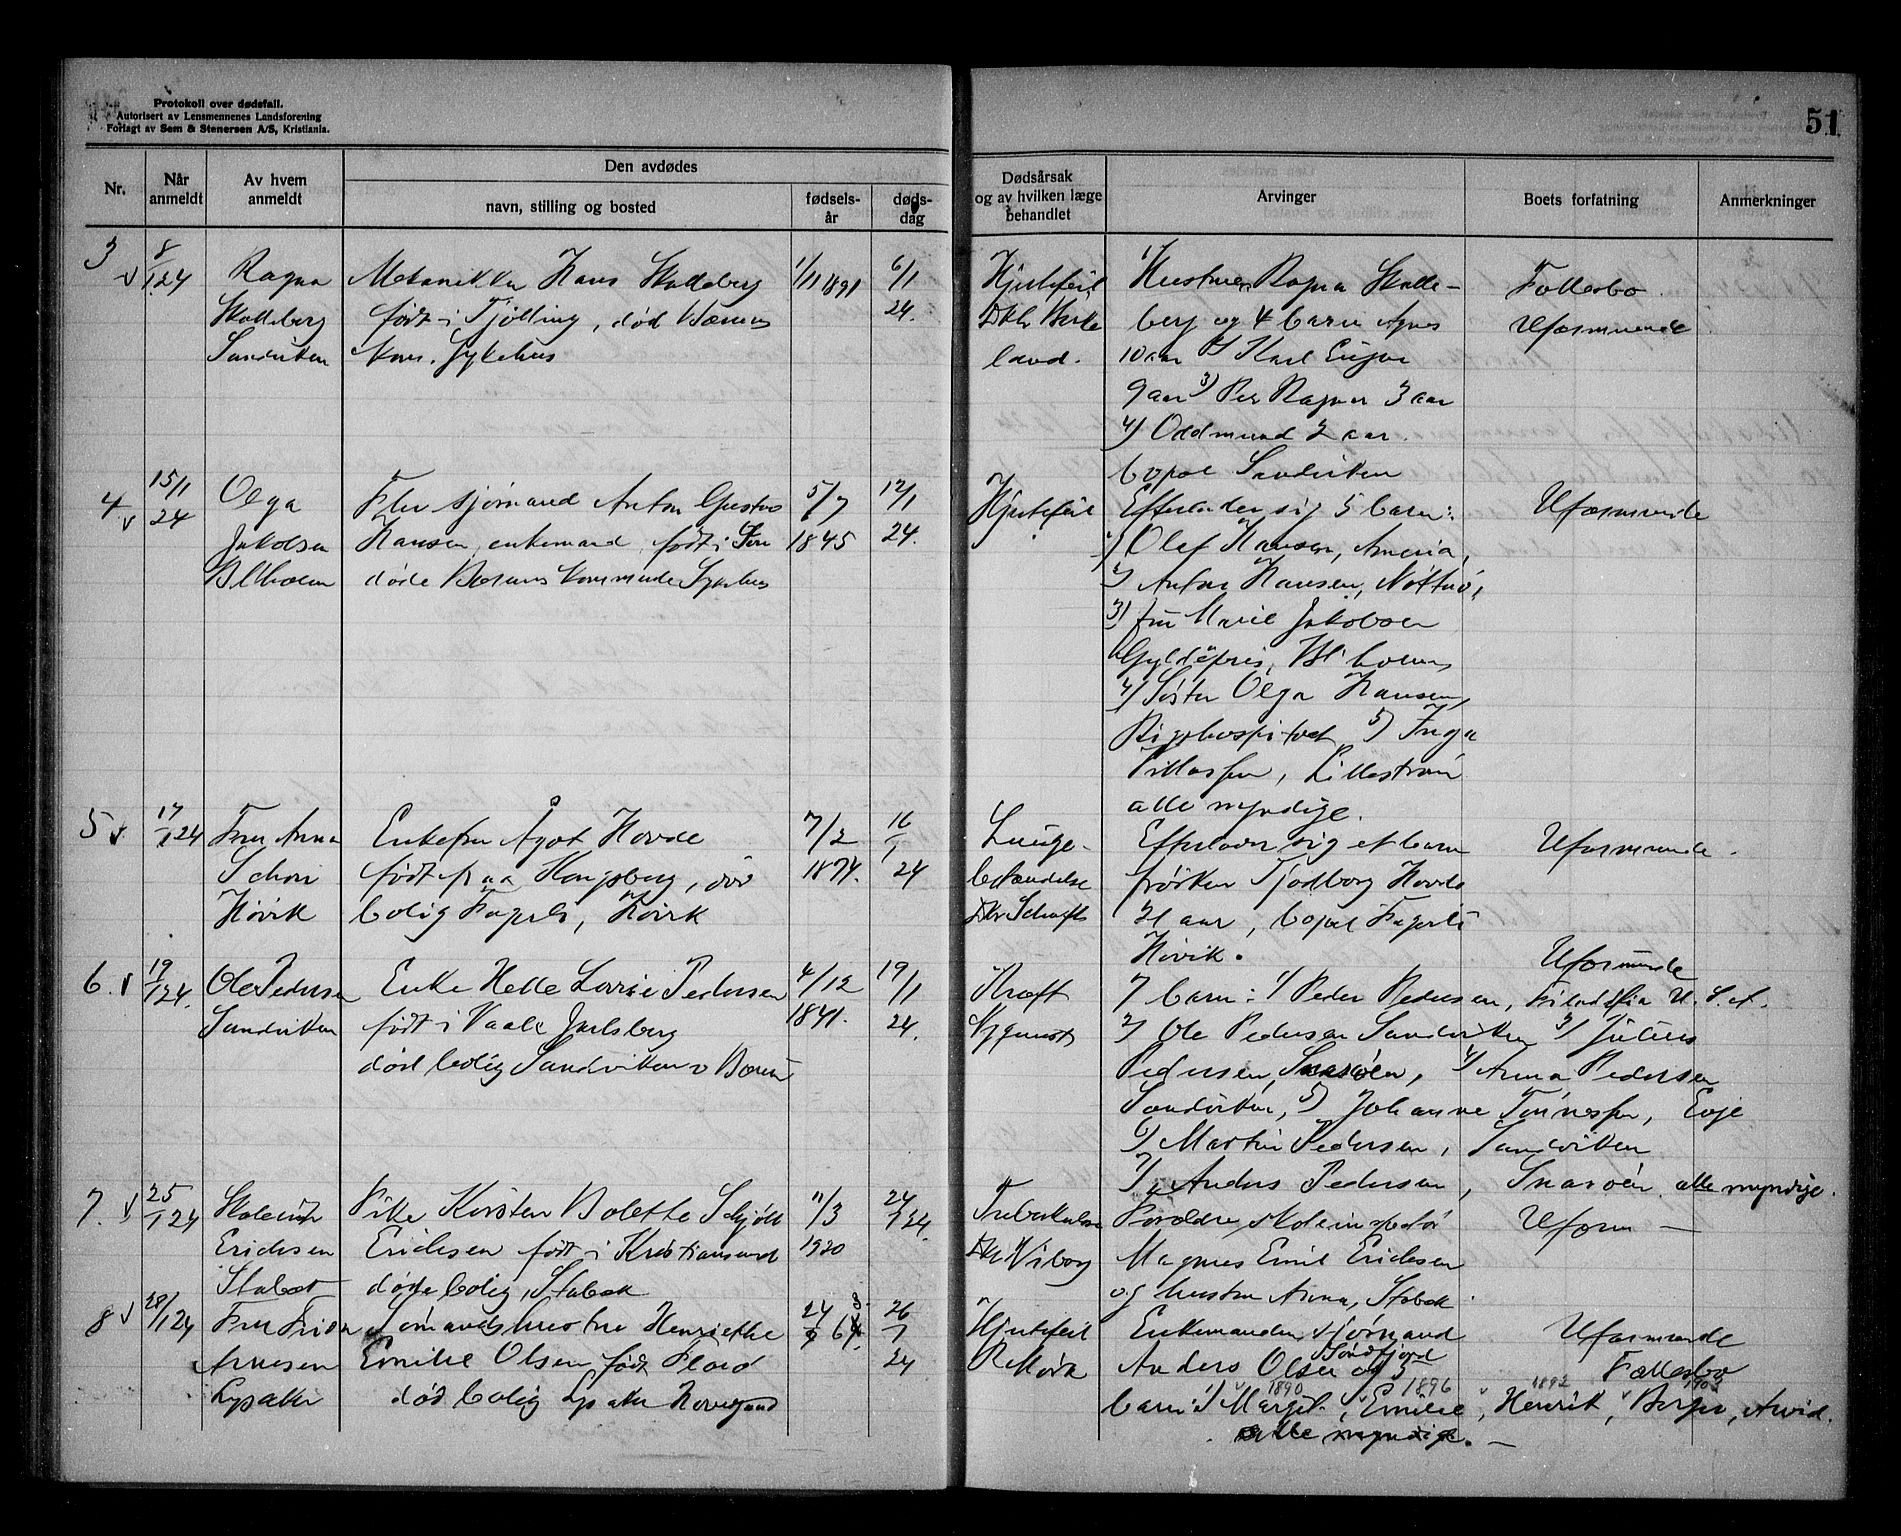 Protokoll over dødsfall.
Autorisert av Lensmennenes Landsforening
Forlagt av Sem & Stenersen A/S, Kristiania.
51
Nr.
Når anmeldt
Av hvem anmeldt
Den avdødes
navn, stilling og bosted
fødsels-år
døds-dag
Dødsårsak og av hvilken læge behandlet
Arvinger
Boets forfatning
Anmerkninger
3
8/1 24
Ragna
Skalleberg
Sandviken
Hans Skalleberg
født i Tjølling, død Bærums
Kom. Sykehus
1/11 1891
6/1
24.
Hjertefeil
land.
Ragna Skalle-
berg og 4 barn Agnes
10 aar 2) Karl
9 aar 3) Per Ragnar 3 aar
4) Oddmund 2 aar.
bopæl Sandviken
Fællesbo
Uformuende
4
15/1
24
Olga
Jakobsen
Bl.holm
sjømand Anton Gustav
Hansen, enkemand, født i
døde Bærums kommunde Sykehus
5/7
1845
12/1
24.
Hjertefeil
Efterlader sig 5 barn:
1) Olaf Hansen, Amerika,
2) Anton Hansen, Nøtterø,
3) fru Marie Jakobsen
Bl.holm,
4) Søster Olga Hansen,
Rigshospitalet 5) Inga
Tillassen, Lillestrøm
alle myndige.
Uformuende
5
17/1 24
Fru Anna
Schou
Høvik
Enkefru Ågot Hovde
født paa Kongsberg, død
bolig Fagerli, Høvik
7/2
1874.
16/1
24
Lunge-
betændelse
Efterlader sig et barn
frøken Tjodborg Hovde
21 aar, bopæl Fagerli
Høvik.
Uformuende.
6.
19/1 24.
Ole Pedersen
Sandviken
Enke Helle Lovise Pedersen
født i Vaale Jarlsberg
død bolig Sandviken i Bærum
4/12
1841.
19/1
24.
Kræft
Uformuende
7 barn: 1) Peder Pedersen, U.S.A.
2) Ole Pedersen Sandviken 3) Julius
Pedersen, Snarøen, 4) Anna Pedersen
Sandviken, 5) Johanne Tønnessen, Evje
6) Martin Pedersen, Sandviken
7) Anders Pedersen, Snarøen. alle myndige.
7.
25/1 24
Ericksen
Stabæk
Pike Kirsten Bolette Schjødt
Ericksen født i Kristiansund
døde bolig, Stabæk
11/3
1920
24/1 24.
Tuberkulose
Viborg
Forældre
Magnus Emil Ericksen
og hustru Anna, Stabæk.
Uform —
8
28/1 24
Fru Frida
Arnesen
Lysaker
Sømandshustru Henriette
Emilie Olsen, født
død bolig Lysaker
26/1
24
Hjertefeil
Enkemanden, sjømand
Anders Olsen og 5
barn: 1) Margit 1890, Emilie 1896, Henrik 1892, Birger, Arvid.
alle myndige. —
Uformuende
Fællesbo